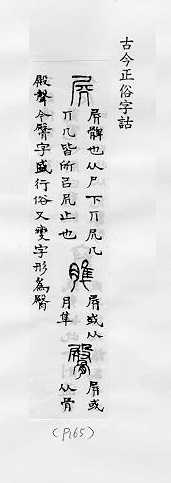 古今正俗字詁
𡱒
𡱒髀也从尸下丌凥几
丌几皆所㠯凥止也
脽
𡱒或从
月隼
𡱒或
从骨
殿聲今臀字盛行俗又變字形為臀
(P165)